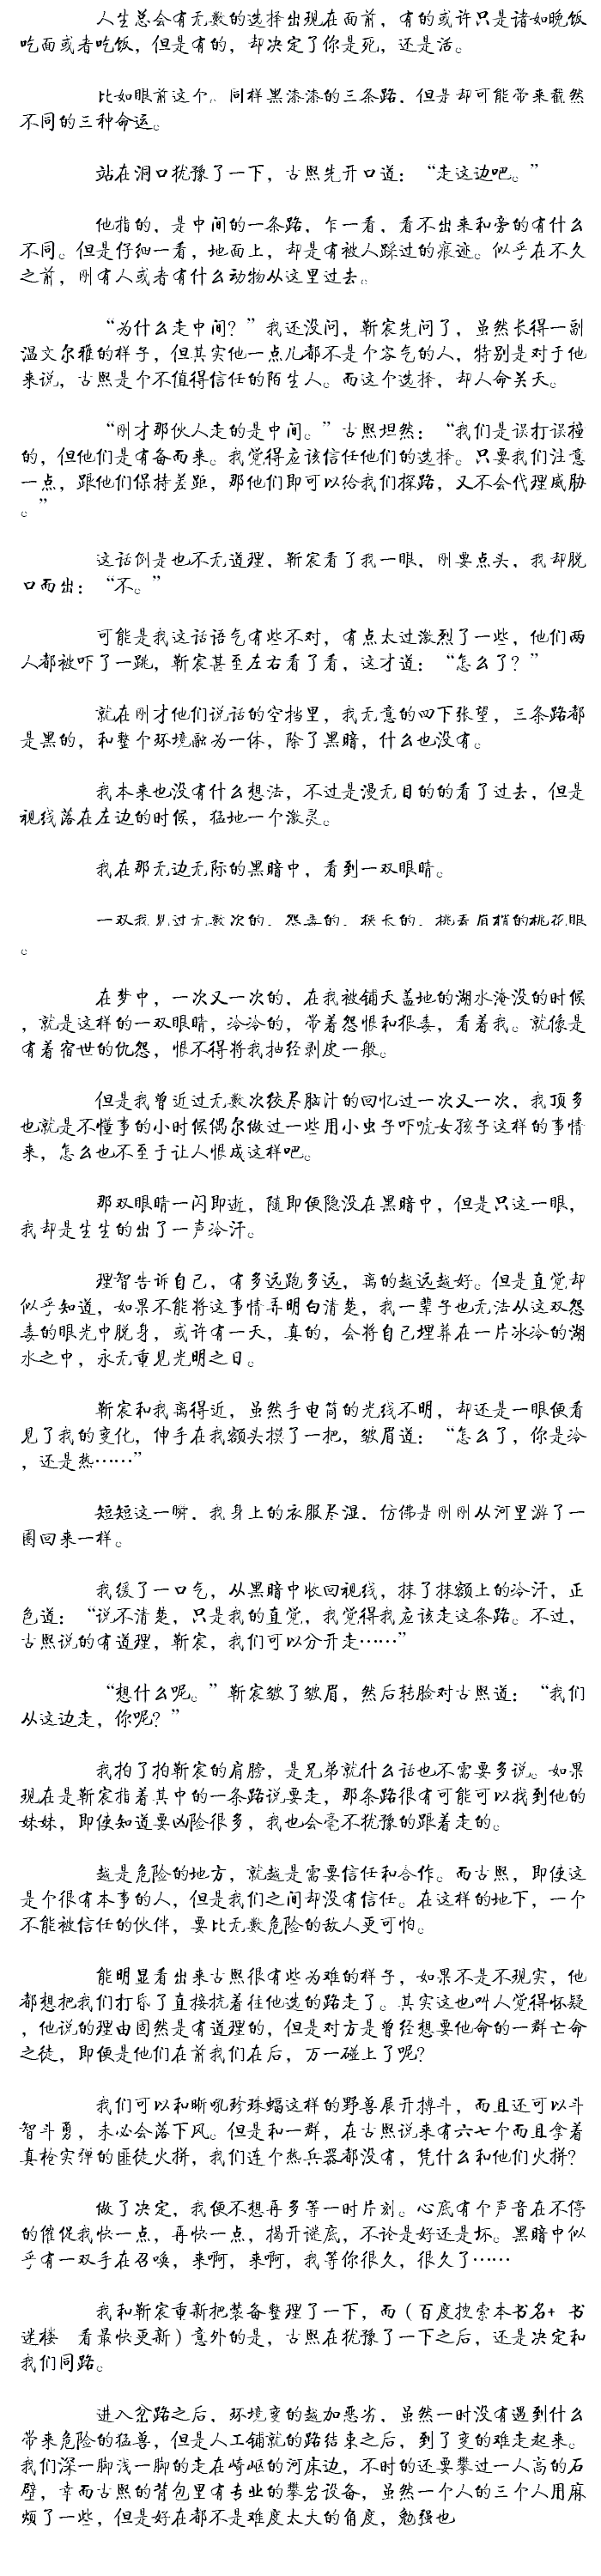 人生总会有无数的选择出现在面前，有的或许只是诸如晚饭
吃面或者吃饭，但是有的，却决定了你是死，还是活。
比如眼前这个。同样黑漆漆的三条路，但是却可能带来截然
不同的三种命运。
站在洞口犹豫了一下，古熙先开口道：“走这边吧。”
他指的，是中间的一条路，乍一看，看不出来和旁的有什么
不同。但是仔细一看，地面上，却是有被人踩过的痕迹。似乎在不久
之前，刚有人或者有什么动物从这里过去。
“为什么走中间？”我还没问，靳宸先问了，虽然长得一副
温文尔雅的样子，但其实他一点儿都不是个客气的人，特别是对于他
来说，古熙是个不值得信任的陌生人。而这个选择，却人命关天。
“刚才那伙人走的是中间。”古熙坦然：“我们是误打误撞
的，但他们是有备而来。我觉得应该信任他们的选择。只要我们注意
一点，跟他们保持差距，那他们即可以给我们探路，又不会代理威胁
。”
这话倒是也不无道理，靳宸看了我一眼，刚要点头，我却脱
口而出：“不。”
可能是我这话语气有些不对，有点太过激烈了一些，他们两
人都被吓了一跳，靳宸甚至左右看了看，这才道：“怎么了？”
就在刚才他们说话的空挡里，我无意的四下张望，三条路都
是黑的，和整个环境融为一体，除了黑暗，什么也没有。
我本来也没有什么想法，不过是漫无目的的看了过去，但是
视线落在左边的时候，猛地一个激灵。
我在那无边无际的黑暗中，看到一双眼睛。
一双我见过无数次的，怨毒的，狭长的，挑着眉梢的桃花眼
。
在梦中，一次又一次的，在我被铺天盖地的湖水淹没的时候
，就是这样的一双眼睛，冷冷的，带着怨恨和狠毒，看着我。就像是
有着宿世的仇怨，恨不得将我抽经剥皮一般。
但是我曾近过无数次绞尽脑汁的回忆过一次又一次，我顶多
也就是不懂事的小时候偶尔做过一些用小虫子吓唬女孩子这样的事情
来，怎么也不至于让人恨成这样吧。
那双眼睛一闪即逝，随即便隐没在黑暗中，但是只这一眼，
我却是生生的出了一声冷汗。
理智告诉自己，有多远跑多远，离的越远越好。但是直觉却
似乎知道，如果不能将这事情弄明白清楚，我一辈子也无法从这双怨
毒的眼光中脱身，或许有一天，真的，会将自己埋葬在一片冰冷的湖
水之中，永无重见光明之日。
靳宸和我离得近，虽然手电筒的光线不明，却还是一眼便看
见了我的变化，伸手在我额头摸了一把，皱眉道：“怎么了，你是冷
，还是热……”
短短这一瞬，我身上的衣服尽湿，仿佛是刚刚从河里游了一
圈回来一样。
我缓了一口气，从黑暗中收回视线，抹了抹额上的冷汗，正
色道：“说不清楚，只是我的直觉，我觉得我应该走这条路。不过，
古熙说的有道理，靳宸，我们可以分开走……”
“想什么呢。”靳宸皱了皱眉，然后转脸对古熙道：“我们
从这边走，你呢？”
我拍了拍靳宸的肩膀，是兄弟就什么话也不需要多说。如果
现在是靳宸指着其中的一条路说要走，那条路很有可能可以找到他的
妹妹，即使知道要凶险很多，我也会毫不犹豫的跟着走的。
越是危险的地方，就越是需要信任和合作。而古熙，即使这
是个很有本事的人，但是我们之间却没有信任。在这样的地下，一个
不能被信任的伙伴，要比无数危险的敌人更可怕。
能明显看出来古熙很有些为难的样子，如果不是不现实，他
都想把我们打昏了直接扛着往他选的路走了。其实这也叫人觉得怀疑
，他说的理由固然是有道理的，但是对方是曾经想要他命的一群亡命
之徒，即便是他们在前我们在后，万一碰上了呢？
我们可以和晰吼珍珠蝠这样的野兽展开搏斗，而且还可以斗
智斗勇，未必会落下风。但是和一群，在古熙说来有六七个而且拿着
真枪实弹的匪徒火拼，我们连个热兵器都没有，凭什么和他们火拼？
做了决定，我便不想再多等一时片刻。心底有个声音在不停
的催促我快一点，再快一点，揭开谜底，不论是好还是坏。黑暗中似
乎有一双手在召唤，来啊，来啊，我等你很久，很久了……
我和靳宸重新把装备整理了一下，而（百度搜索本书名+ 书
迷楼 看最快更新）意外的是，古熙在犹豫了一下之后，还是决定和
我们同路。
进入岔路之后，环境变的越加恶劣，虽然一时没有遇到什么
带来危险的猛兽，但是人工铺就的路结束之后，到了变的难走起来。
我们深一脚浅一脚的走在崎岖的河床边，不时的还要攀过一人高的石
壁，幸而古熙的背包里有专业的攀岩设备，虽然一个人的三个人用麻
烦了一些，但是好在都不是难度太大的角度，勉强也